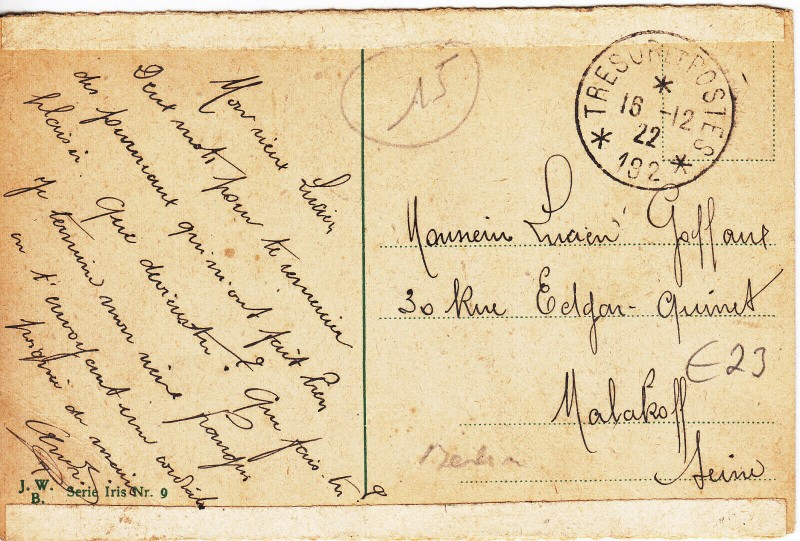 Mon vieux Lucien
Deux mots pour te remercier
des journaux qui m'ont fait bien
plaisir. Que deviens-tu ? Que fais-tu ?
Je termine mon vieux
en t'envoyant une cordiale
poignée de main
André
J. W.
B. Serie Iris Nr. 9
15
TRESOR ET POSTES
16 -12
22
192
Monsieur Lucien Goffaux
30 Rue Edgar-Quinet
Malakoff
Seine
E23